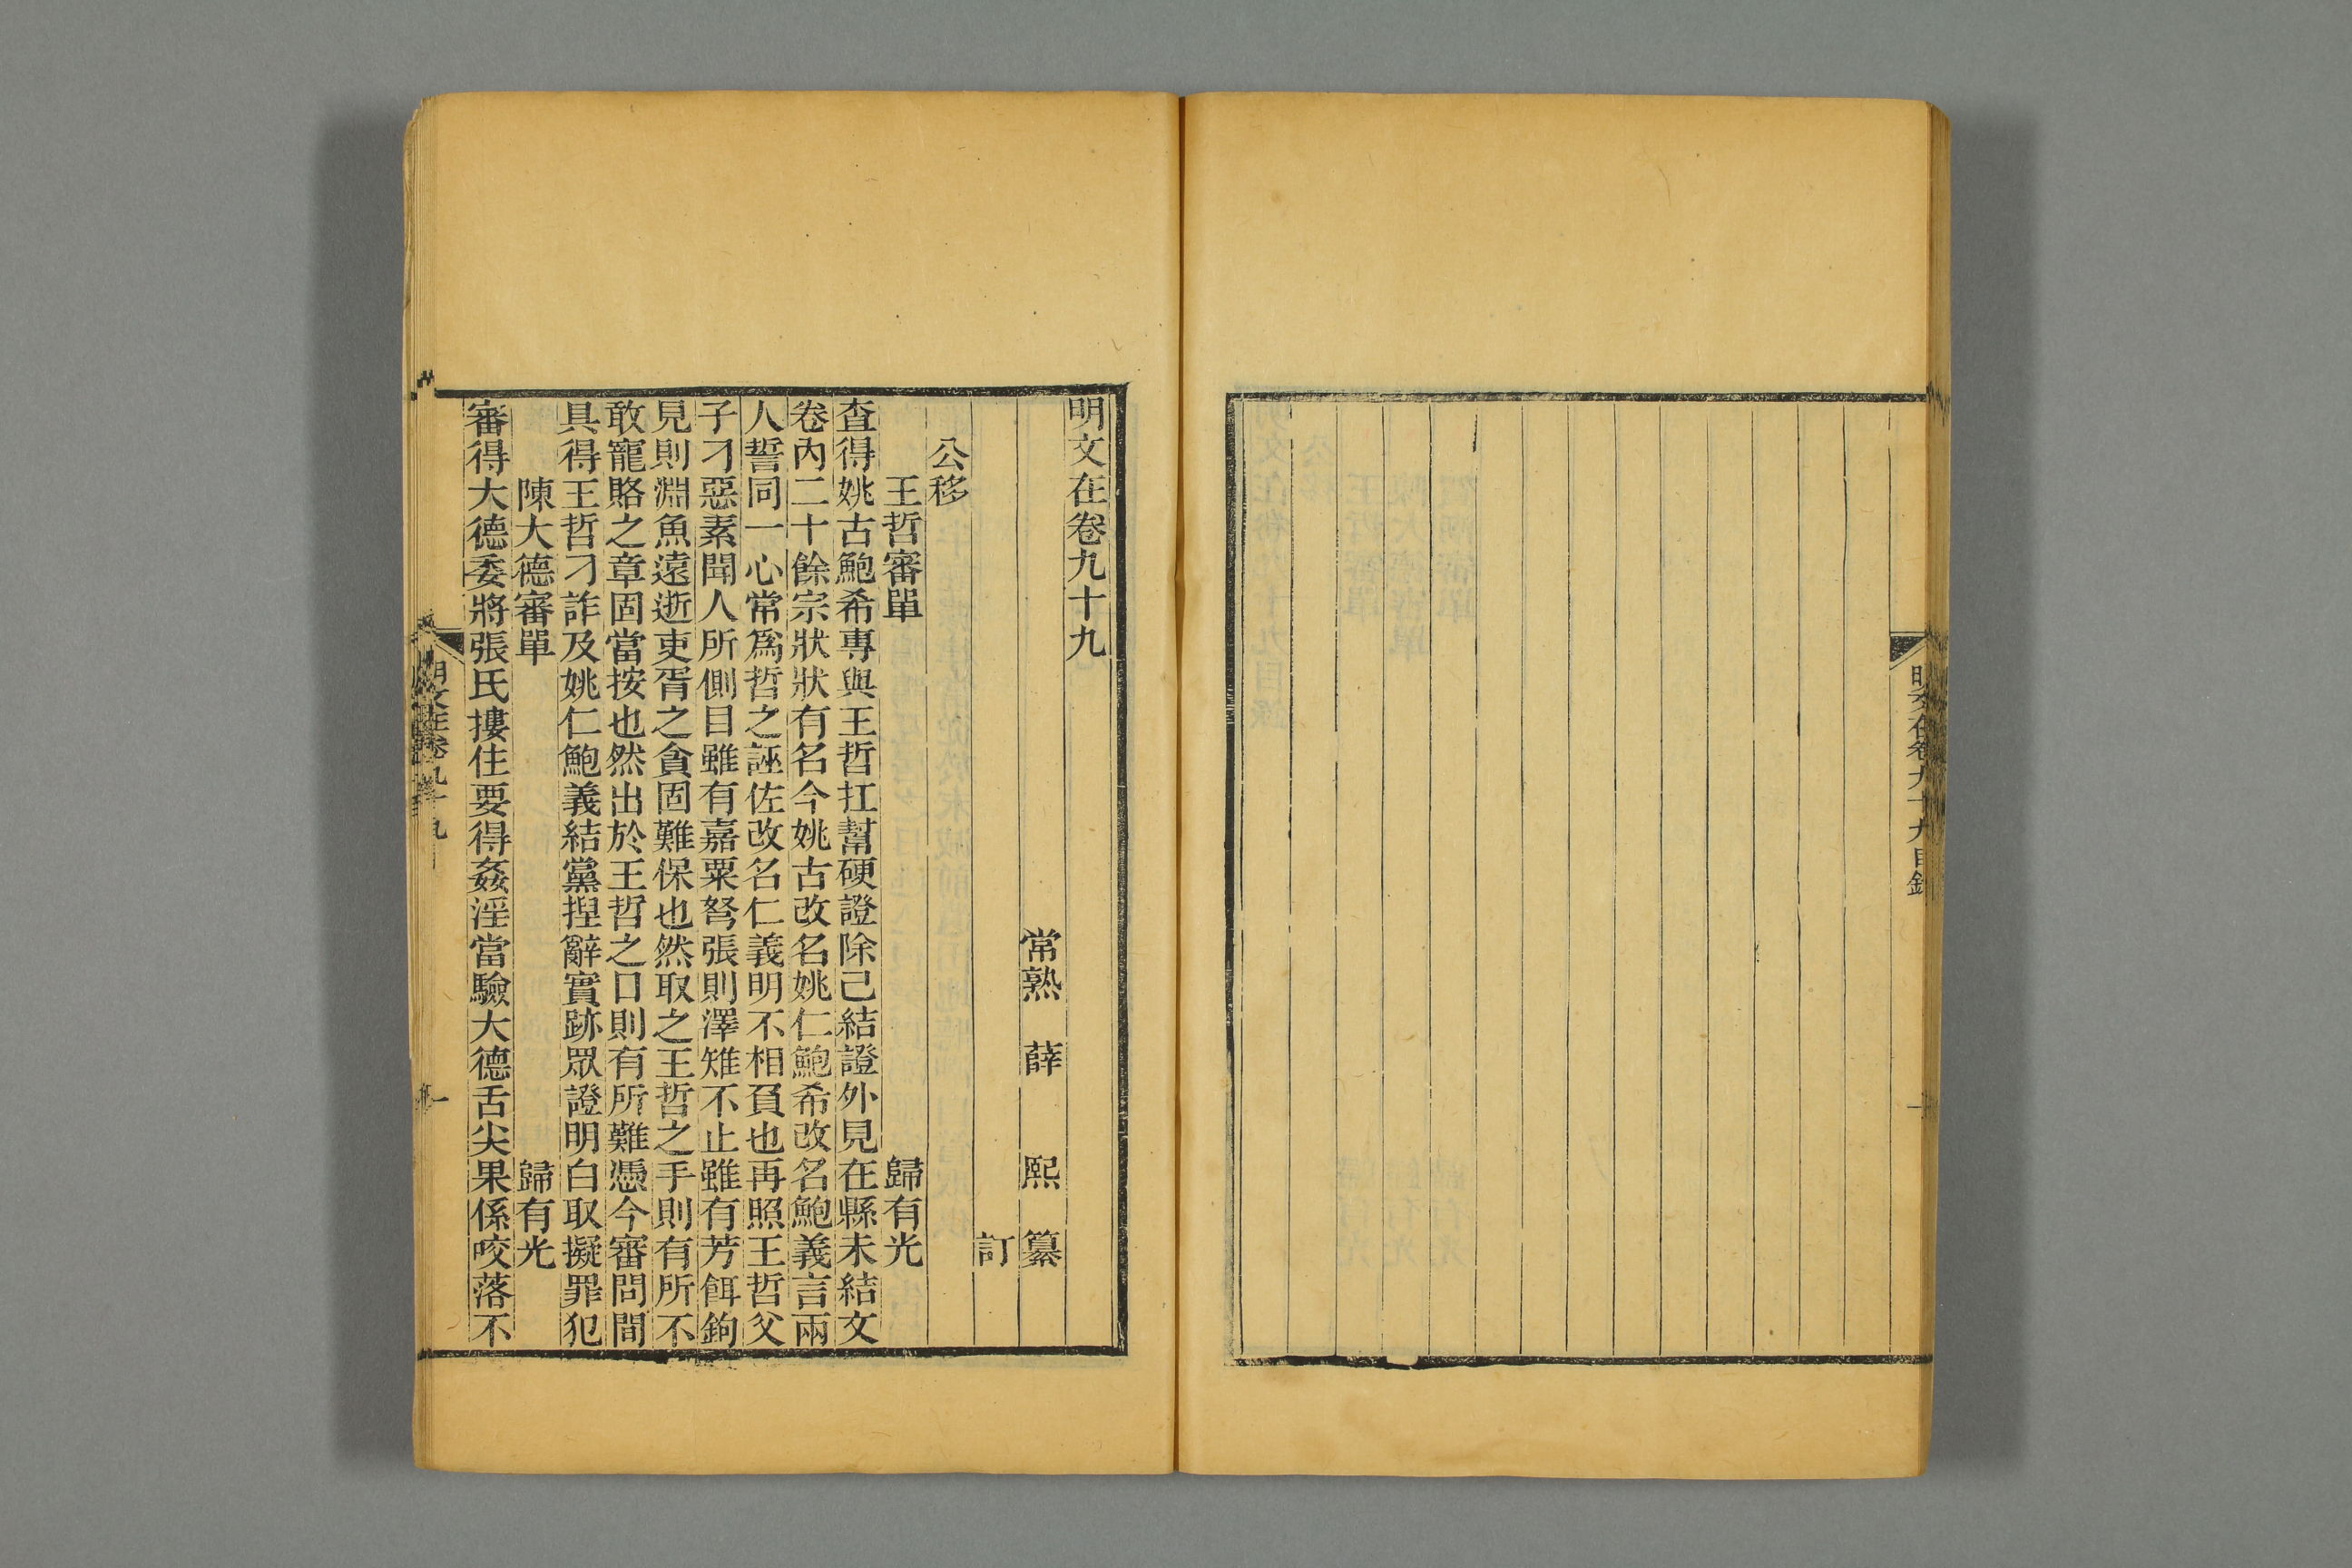 明文在卷九十九目錄
明文在卷九十九
常熟 薛 熙 纂
訂
公移
王哲審單 歸有光
查得姚古鮑希專與王哲扛幫硬證除己結證外見在縣未結文
卷內二十餘宗狀狀有名今姚古改名姚仁鮑希改名鮑義言兩
人誓同一心常為哲之誣佐改名仁義明不相負也再照王哲父
子刁惡素聞人所側目雖有嘉粟弩張則澤雉不止雖有芳餌鉤
見則淵魚遠逝吏胥之貪固難保也然取之王哲之手則有所不
敢寵賂之章固當按也然出於王哲之口則有所難憑今審問間
具得王哲刁詐及姚仁鮑義結黨揑辭實跡眾證明白取擬罪犯
陳大德審單 歸有光
審得大德委將張氏摟住要得姦淫當驗大德舌尖果係咬落不
明文在卷九十九
一